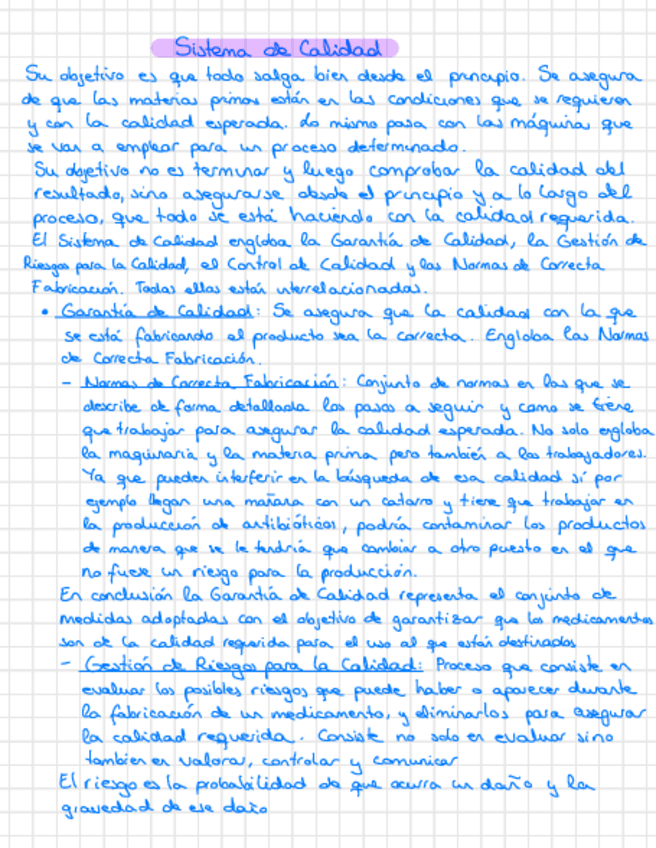 Sistema de Calidad
Su objetivo es que todo salga bien desde el principio. Se asegura
de que las materias primas están en las condiciones que se requieren
y con la calidad esperada. Lo mismo pasa con las máquinas que
se van a emplear para un proceso determinado.
Su objetivo no es terminar y luego comprobar la calidad del
resultado, sino asegurarse desde el principio y a lo largo del
proceso, que todo se está haciendo con la calidad requerida.
El Sistema de Calidad engloba la Garantía de Calidad, la Gestión de
Riesgos para la Calidad, el Control de Calidad y las Normas de Correcta
Fabricación. Todas ellas están interrelacionadas.
• Garantía de Calidad: Se asegura que la calidad con la que
se está fabricando el producto sea la correcta. Engloba las Normas
de Correcta Fabricación.
- Normas de Correcta Fabricación: Conjunto de normas en las que se
describe de forma detallada los pasos a seguir y como se tiene
que trabajar para asegurar la calidad esperada. No solo engloba
la maquinaria y la materia prima pero también a los trabajadores.
Ya que pueden interferir en la búsqueda de esa calidad si por
ejemplo llegan una mañana con un catarro y tiene que trabajar en
la producción de antibióticos, podría contaminar los productos
de manera que se le tendría que cambiar a otro puesto en el que
no fuese un riesgo para la producción.
En conclusión la Garantía de Calidad representa el conjunto de
medidas adoptadas con el objetivo de garantizar que los medicamentos
son de la calidad requerida para el uso al que están destinados
- Gestión de Riesgos para la Calidad: Proceso que consiste en
evaluar los posibles riesgos que puede haber o aparecer durante
la fabricación de un medicamento, y eliminarlos para asegurar
la calidad requerida. Consiste no solo en evaluar sino
tambien en valorar, controlar y comunicar
El riesgo es la probabilidad de que ocurra un daño y la
gravedad de ese daño